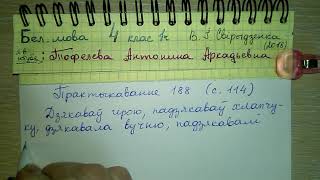 Бел. мова 4 клас 1ч В. І Свірыдзенка
(2018)
Тюфелева Антонина Аркадьевна
Практыкаванне 188 (с. 114)
Дзякаваў герою, падзякаваў хлапчу-
ку, дзякавала вучню, падзякавалі